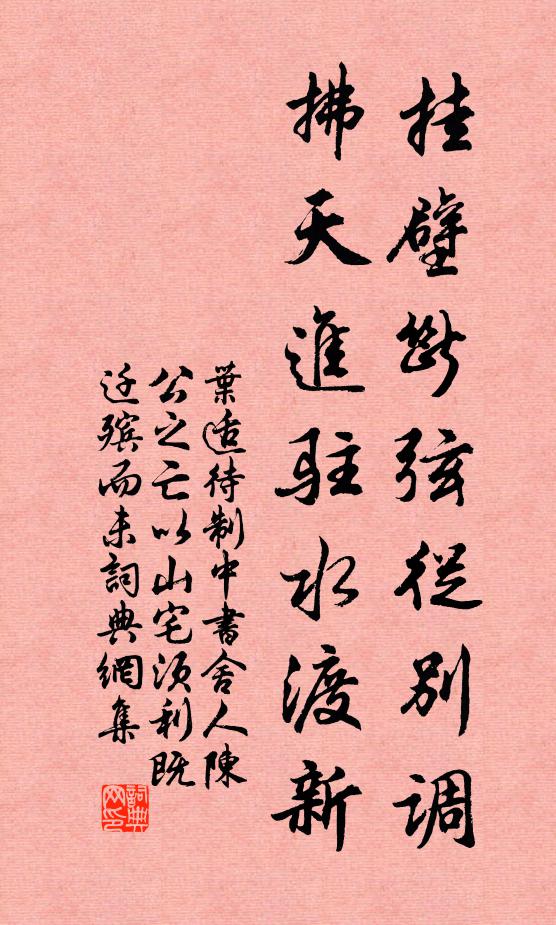 挂壁断弦從别调
拂天進驻水渡新
葉适待制中書舍人陳
公之亡以山宅須利既
迁殡而未詞典網集
詞典网印